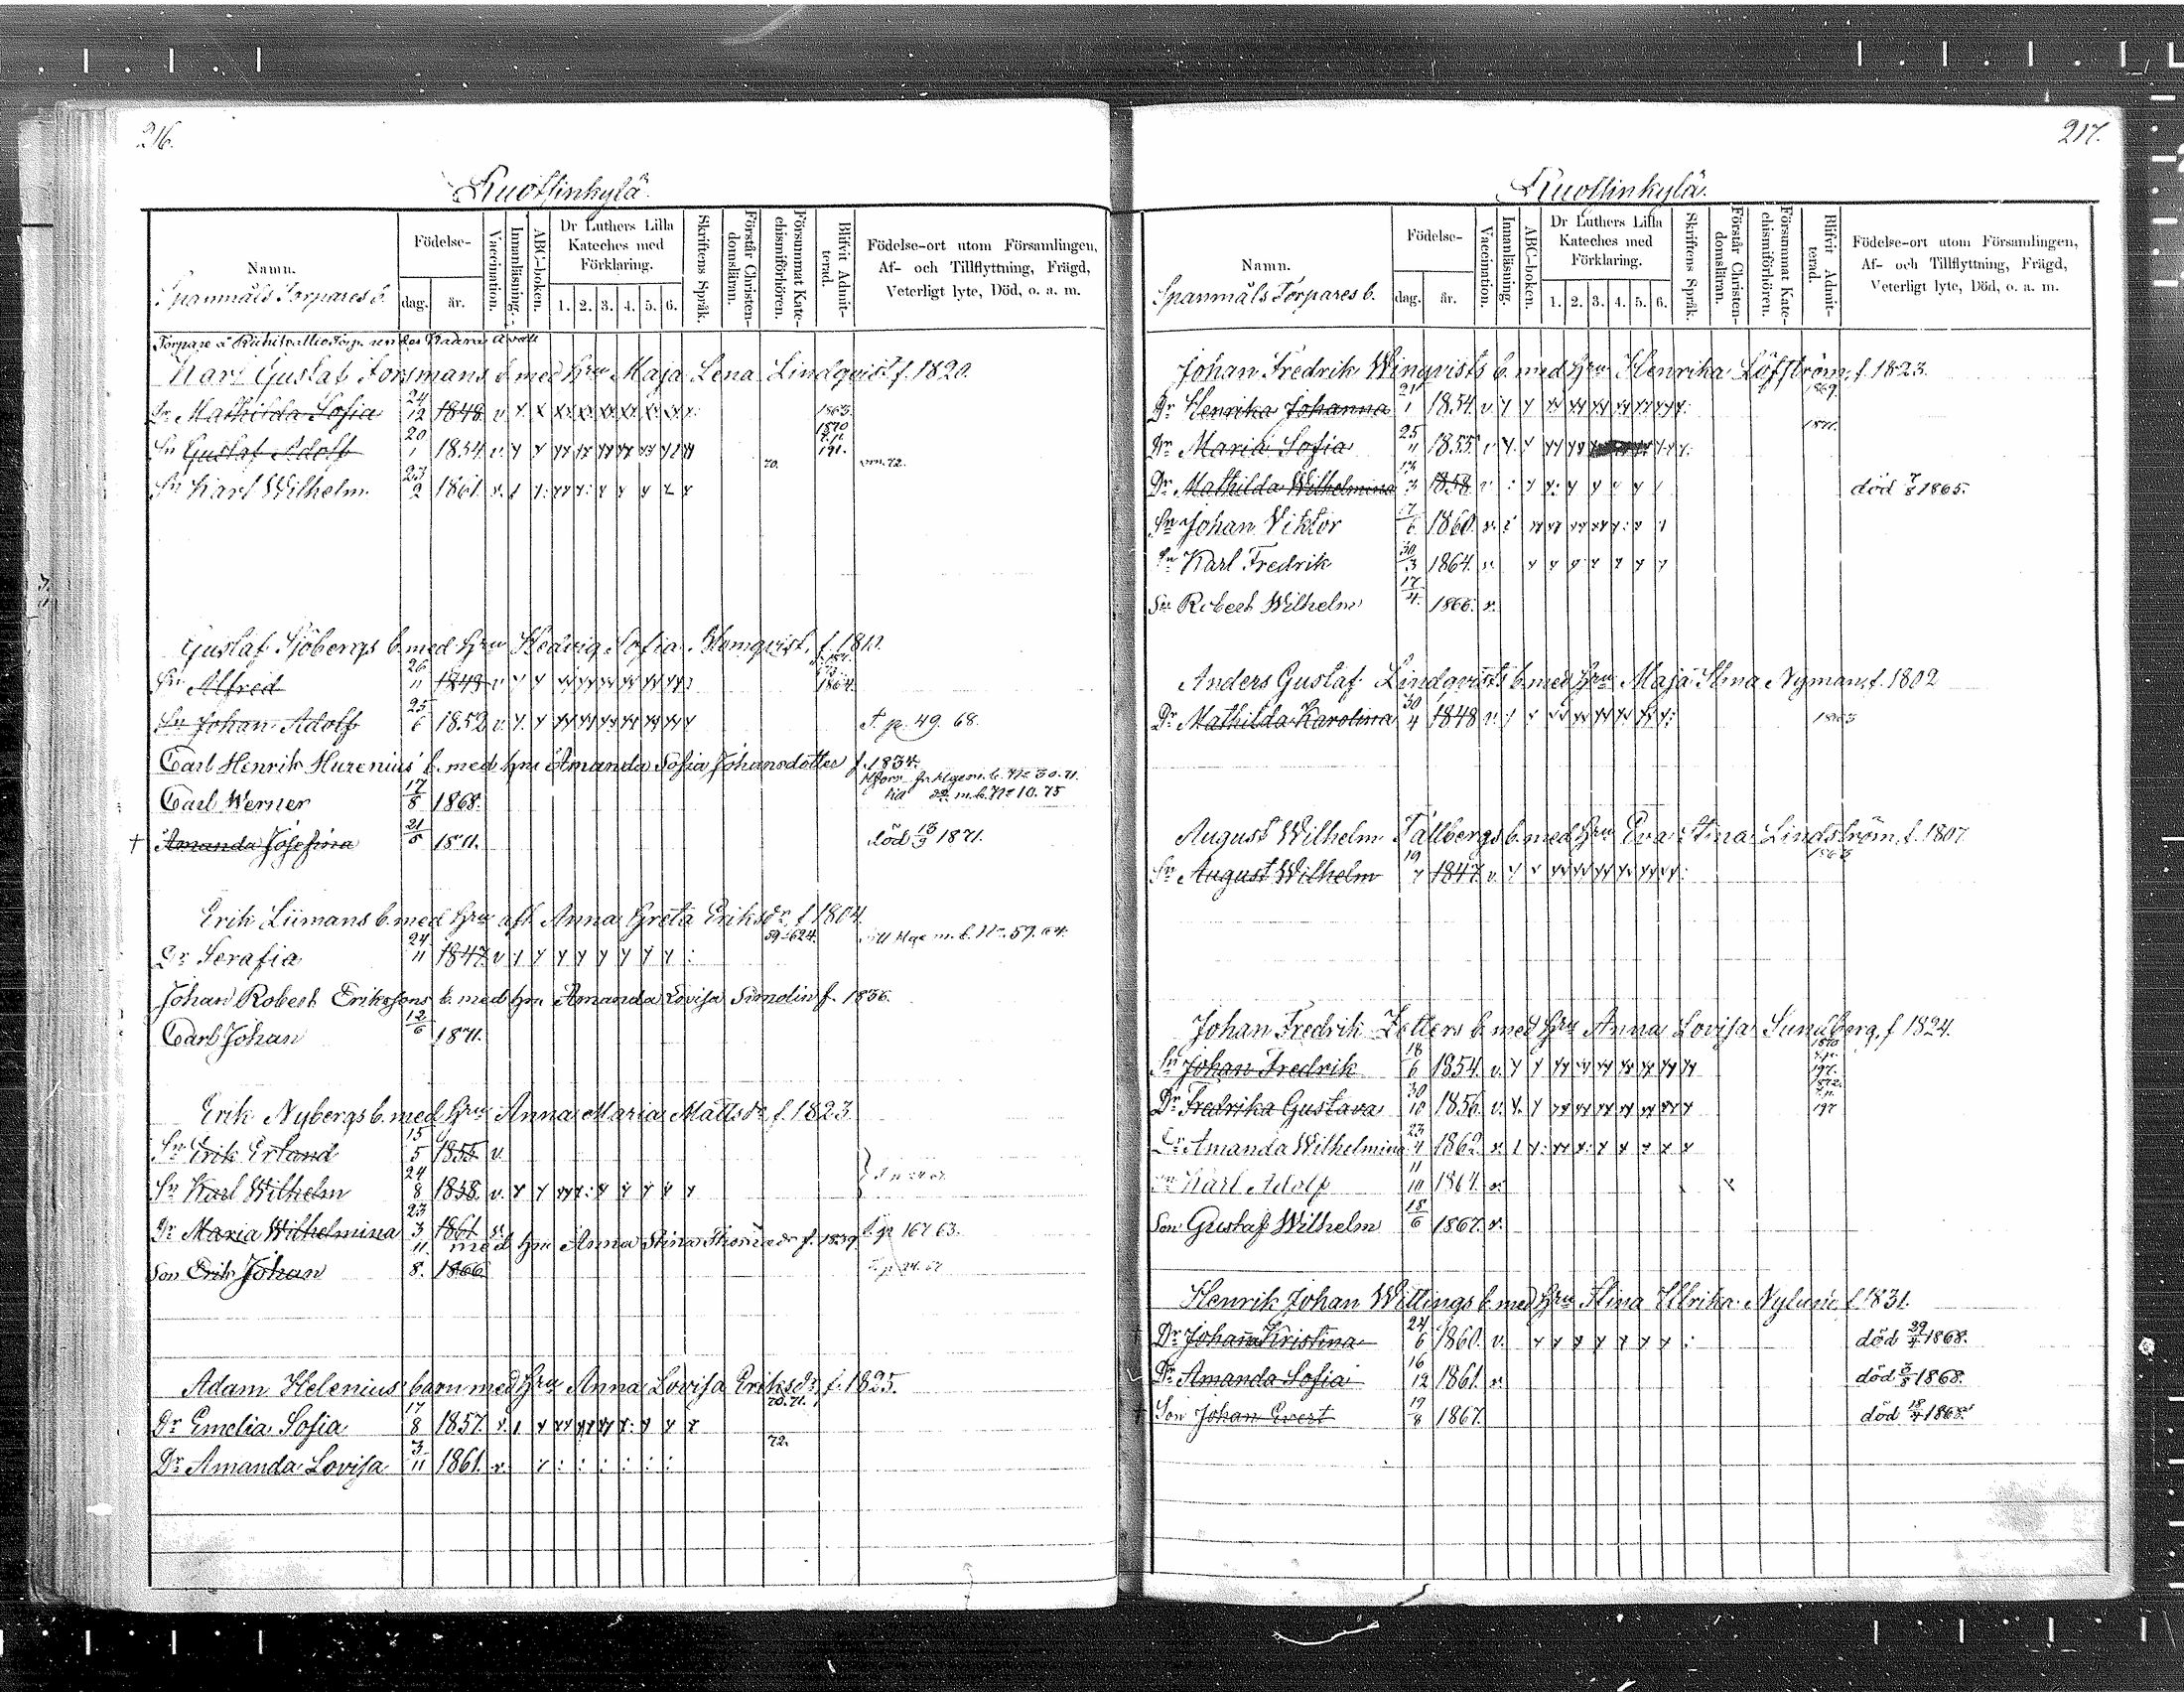 216.
Kuoflinkylä.
Namn.
Spanmåls Torpares b.
Födelse-
dag. år.
Vaccination.
Innanläsning.
ABC-boken.
Dr Luthers Lilla Kateches med Förklaring.
1. 2. 3. 4. 5. 6.
Skriftens Språk.
Förstår Christendomsläran.
Försummat Katechismiförhören.
Blifvit Admitterad.
Födelse-ort utom Församlingen, Af- och Tillflyttning, Frägd, Veterligt lyte, Död, o. a. m.
Karl Gustaf Forsmans b. med Hru Maja Lena Lindqvist f. 1820.
Dr Mathilda Sofia 24/12 1848 1863.
Sn Gustaf Adolf 20/1 1854 1870 191.
Sn Karl Wilhelm 23/2 1861 70.
Gustaf Sjöbergs b. med Hru Hedvig Sofia Blomqvist, f.
Sn Alfred 26/11 1849 1864.
Sn Johan Adolf 25/6 1852 T. p. 49. 68.
Carl Henrik Hurenius' b. med hru Amanda Sofia Johansdotter f. 1834.
Carl Werner 17/8 1868.
† Amanda Josefina 21/5 1871. död 13/9 1871.
Erik Liimans b. med Hru afl. Anna Greta Eriksdr, f. 1804.
Dr Serafia 24/11 1847
Johan Robert Erikssons b. med hru Amanda Lovisa Simolin f. 1836.
Carl Johan 12/6 1871.
Erik Nybergs b. med Hru Anna Maria Mattsdr f. 1823.
Sn Erik Erland 15/5 1855 v.
Sn Karl Wilhelm 24/8 1858.
Dr Maria Wilhelmina 23/3 1861 T. p. 167 63.
med hru Anna Stina f. 1839
Son Erik Johan 11/8. 1866.
Adam Helenius' barn med Hru Anna Lovisa Eriksdr, f. 1825.
Dr Emelia Sofia 17/8 1857. 70. 71.
Dr Amanda Lovisa 3/11 1861. 72.
217.
Kuoflinkylä.
Namn.
Spanmåls Torpares b.
Födelse-
dag. år.
Vaccination.
Innanläsning.
ABC-boken.
Dr Luthers Lilla Kateches med Förklaring.
1. 2. 3. 4. 5. 6.
Skriftens Språk.
Förstår Christendomsläran.
Försummat Katechismiförhören.
Blifvit Admitterad.
Födelse-ort utom Församlingen, Af- och Tillflyttning, Frägd, Veterligt lyte, Död, o. a. m.
Johan Fredrik Winqvists b. med Hru Henrika Löfström, f. 1823.
Dr Henrika Johanna 21/1 1854. 1869.
Dr Maria Sofia 25/11 1855 1871.
Dr Mathilda Wilhelmina 1858 död 7/8 1865.
Sn Johan Viktor 17/6 1860.
Sn Karl Fredrik 30/3 1864.
Sn Robert Wilhelm 17/4. 1866.
Anders Gustaf Lindqvists b. med Hru Maja Stina Nyman, f. 1802
Dr Mathilda Karolina 30/4 1848
August Wilhelm Tallbergs b. med Hru Eva Stina Lindström, f. 1807.
Sn August Wilhelm 19/7 1847
Johan Fredrik Zetters b. med Hru Anna Lovisa Sundberg, f 1824.
Sn Johan Fredrik 18/6 1854. 1870 197.
Dr Fredrika Gustava 30/10 1856 1872. 197
Dr Amanda Wilhelmina 23/4 1862
Sn Karl Adolf 11/10 1864.
Son Gustaf Wilhelm 18/6 1867.
Henrik Johan Wittings b. med Hru Stina Ulrika Nylund f. 1831.
Dr Johanna Kristina 24/6 1860. död 29/4 1868.
Dr Amanda Sofia 16/12 1861. död 1868.
† Son Johan Evert 19/8 1867. död 18/4 1868.